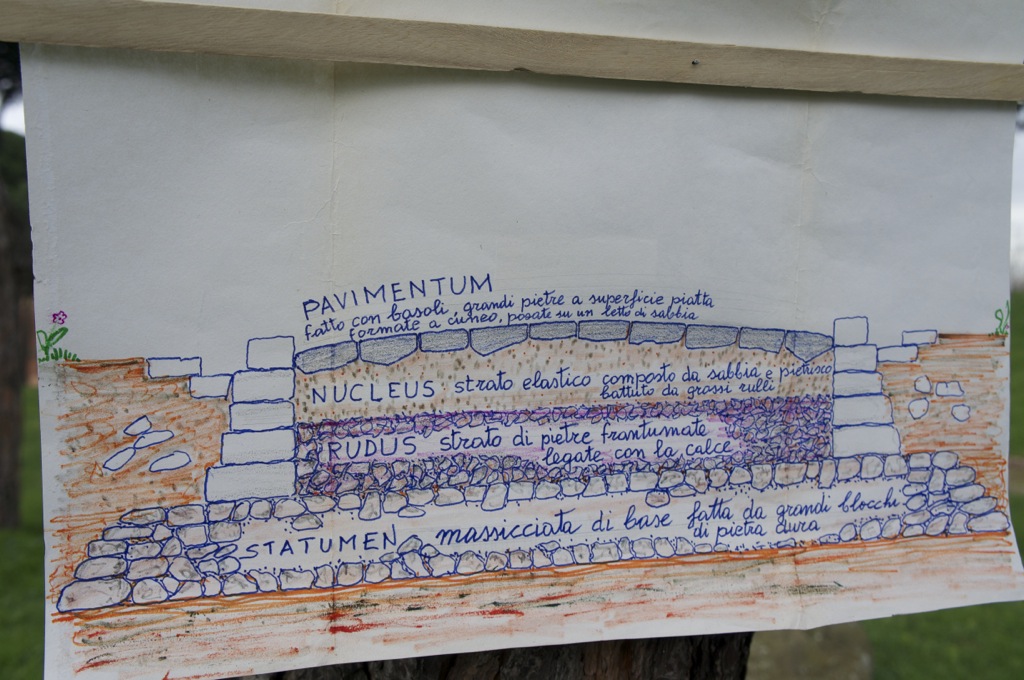 PAVIMENTUM
fatto con basoli, grandi pietre a superficie piatta
formate a cuneo, posate su un letto di sabbia
NUCLEUS strato elastico composto da sabbia e pietrisco
battuto da grossi rulli
RUDUS strato di pietre frantumate
legate con la calce
STATUMEN massicciata di base fatta da grandi blocchi
di pietra dura